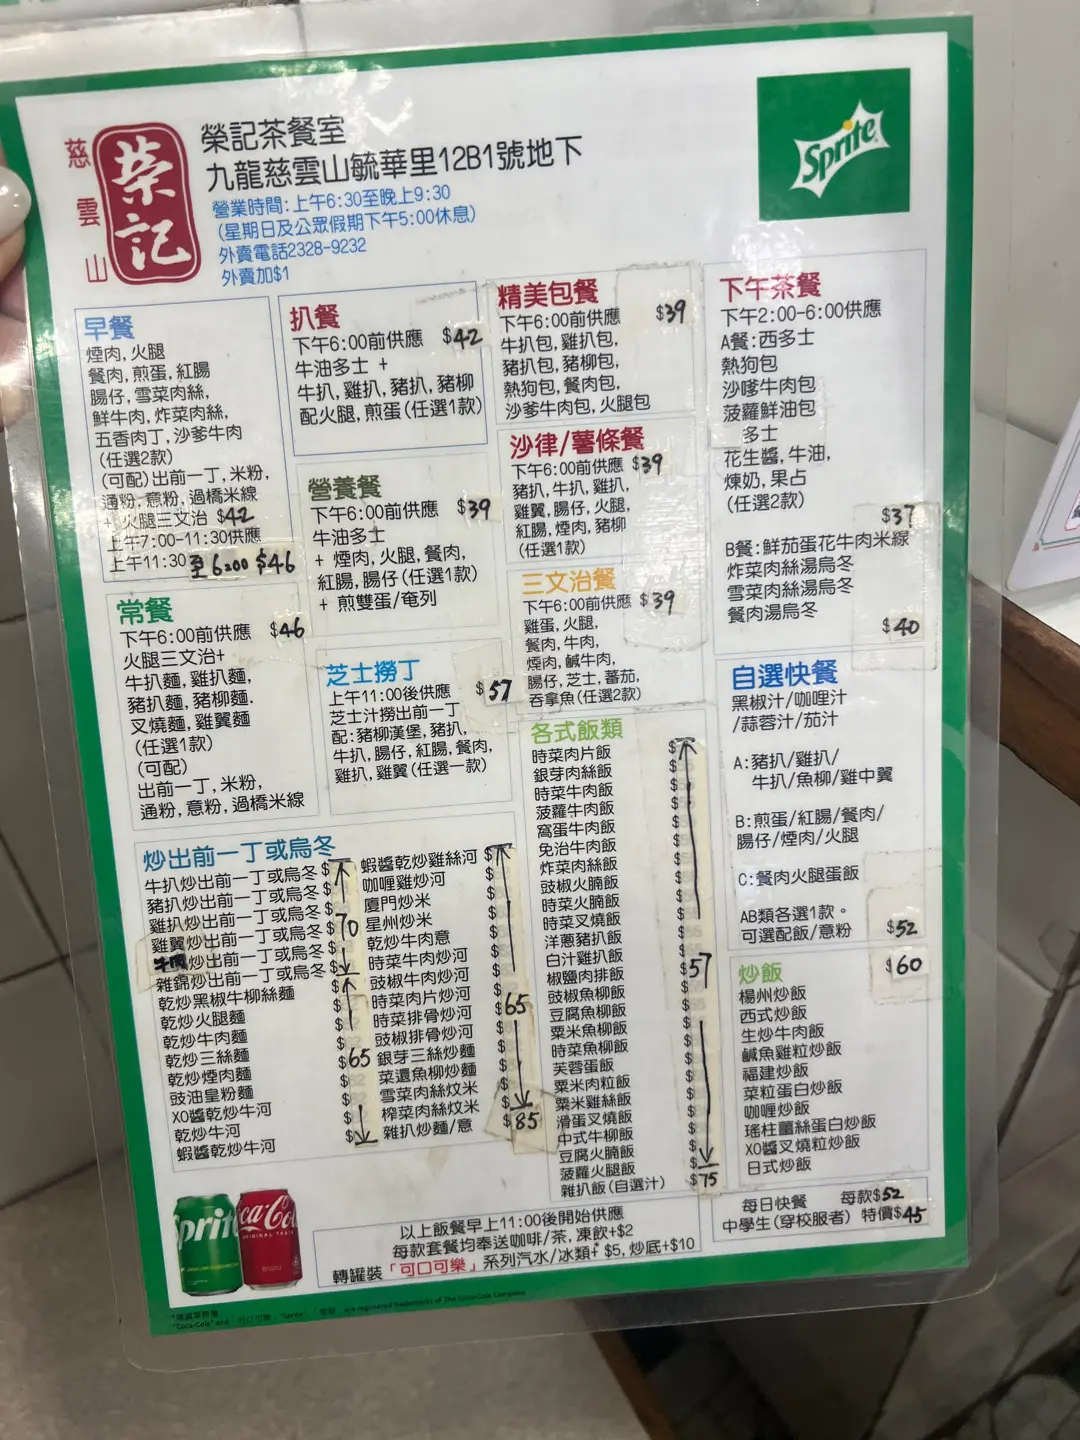 慈雲山
榮記
榮記茶餐室
九龍慈雲山毓華里12B1號地下
營業時間:上午6:30至晚上9:30
(星期日及公眾假期下午5:00休息)
外賣電話2328-9232
外賣加$1
Sprite
早餐
煙肉,火腿
餐肉,煎蛋,紅腸
腸仔,雪菜肉絲,
鮮牛肉,炸菜肉絲,
五香肉丁,沙爹牛肉
(任選2款)
(可配)出前一丁,米粉,
通粉,意粉,過橋米線
+ 火腿三文治 $42
上午7:00-11:30供應
上午11:30至6:00 $46
常餐
下午6:00前供應 $46
火腿三文治+
牛扒麵,雞扒麵,
豬扒麵,豬柳麵.
叉燒麵,雞翼麵
(任選1款)
(可配)
出前一丁,米粉,
通粉,意粉,過橋米線
扒餐
下午6:00前供應 $42
牛油多士 +
牛扒,雞扒,豬扒,豬柳
配火腿,煎蛋(任選1款)
營養餐
下午6:00前供應 $39
牛油多士
+ 煙肉,火腿,餐肉,
紅腸,腸仔(任選1款)
+ 煎雙蛋/奄列
芝士撈丁
上午11:00後供應 $57
芝士汁撈出前一丁
配:豬柳漢堡,豬扒,
牛扒,腸仔,紅腸,餐肉,
雞扒,雞翼(任選一款)
精美包餐
下午6:00前供應 $39
牛扒包,雞扒包,
豬扒包,豬柳包,
熱狗包,餐肉包,
沙爹牛肉包,火腿包
沙律/薯條餐
下午6:00前供應 $39
豬扒,牛扒,雞扒,
雞翼,腸仔,火腿,
紅腸,煙肉,豬柳
(任選1款)
三文治餐
下午6:00前供應 $39
雞蛋,火腿,
餐肉,牛肉,
煙肉,鹹牛肉,
腸仔,芝士,蕃茄,
吞拿魚(任選2款)
下午茶餐
下午2:00-6:00供應
A餐:西多士
熱狗包
沙嗲牛肉包
菠蘿鮮油包
多士
花生醬,牛油,
煉奶,果占
(任選2款)
$37
B餐:鮮茄蛋花牛肉米線
炸菜肉絲湯烏冬
雪菜肉絲湯烏冬
餐肉湯烏冬
$40
自選快餐
黑椒汁/咖哩汁
/蒜蓉汁/茄汁
A:豬扒/雞扒/
牛扒/魚柳/雞中翼
B:煎蛋/紅腸/餐肉/
腸仔/煙肉/火腿
C:餐肉火腿蛋飯
AB類各選1款。
可選配飯/意粉 $52
炒出前一丁或烏冬
牛扒炒出前一丁或烏冬 $
豬扒炒出前一丁或烏冬 $
雞扒炒出前一丁或烏冬 $
雞翼炒出前一丁或烏冬 $70
牛肉炒出前一丁或烏冬 $
雜錦炒出前一丁或烏冬 $
乾炒黑椒牛柳絲麵 $
乾炒火腿麵 $
乾炒牛肉麵 $
乾炒三絲麵 $65
乾炒煙肉麵 $
豉油皇炒麵 $
XO醬乾炒牛河 $
乾炒牛河 $
蝦醬乾炒牛河
蝦醬乾炒雞絲河 $
咖哩雞炒河 $
廈門炒米 $
星州炒米 $
乾炒牛肉意 $
時菜牛肉炒河 $
豉椒牛肉炒河 $
時菜肉片炒河 $65
時菜排骨炒河 $
豉椒排骨炒河 $
銀芽三絲炒麵 $
菜遠魚柳炒麵 $
雪菜肉絲炆米 $
榨菜肉絲炆米 $
雜扒炒麵/意 $85
各式飯類
時菜肉片飯 $
銀芽肉絲飯 $
時菜牛肉飯 $
菠蘿牛肉飯 $
窩蛋牛肉飯 $
免治牛肉飯 $
炸菜肉絲飯 $
豉椒火腩飯 $
時菜火腩飯 $
時菜叉燒飯 $
洋蔥豬扒飯 $
白汁雞扒飯 $57
椒鹽肉排飯 $
豉椒魚柳飯 $
豆腐魚柳飯 $
粟米魚柳飯 $
時菜魚柳飯 $
芙蓉蛋飯 $
粟米肉粒飯 $
粟米雞絲飯 $
滑蛋叉燒飯 $
中式牛柳飯 $
豆腐火腩飯 $
菠蘿火腿飯 $
雜扒飯(自選汁) $75
炒飯 $60
楊州炒飯
西式炒飯
生炒牛肉飯
鹹魚雞粒炒飯
福建炒飯
菜粒蛋白炒飯
咖喱炒飯
瑤柱薑絲蛋白炒飯
XO醬叉燒粒炒飯
日式炒飯
每日快餐 每款$52
中學生(穿校服者) 特價$45
以上飯餐早上11:00後開始供應
每款套餐均奉送咖啡/茶,凍飲+$2
轉罐裝「可口可樂」系列汽水/冰類+ $5,炒底+$10
Sprite
Coca-Cola
ORIGINAL TASTE
"Coca-Cola" and 「可口可樂」 "Sprite" 「雪碧」 are registered trademarks of The Coca-Cola Company